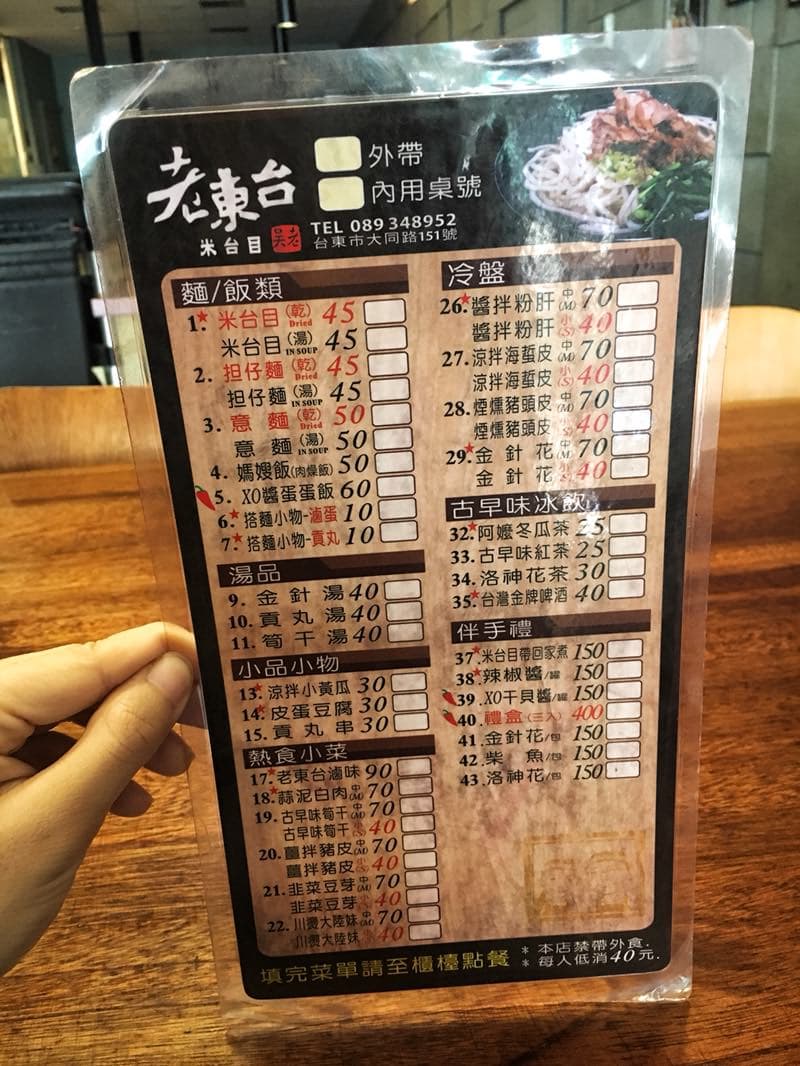 老東台
米台目 吳老
外帶
內用桌號
TEL 089 348952
台東市大同路151號
麵/飯類
1.米台目(乾)Dried 45
米台目(湯)IN SOUP 45
2.担仔麵(乾)Dried 45
担仔麵(湯)IN SOUP 45
3.意麵(乾)Dried 50
意麵(湯)IN SOUP 50
4.媽嫂飯(肉燥飯)50
5.XO醬蛋蛋飯60
6.搭麵小物-滷蛋10
7.搭麵小物-貢丸10
湯品
9.金針湯40
10.貢丸湯40
11.筍干湯40
小品小物
13.涼拌小黃瓜30
14.皮蛋豆腐30
15.貢丸串30
熱食小菜
17.老東台滷味90
18.蒜泥白肉中(M)70
19.古早味筍干中(M)70
古早味筍干小(S)40
20.薑拌豬皮中(M)70
薑拌豬皮小(S)40
21.韭菜豆芽中(M)70
韭菜豆芽小(S)40
22.川燙大陸妹中(M)70
川燙大陸妹小(S)40
冷盤
26.醬拌粉肝中(M)70
醬拌粉肝小(S)40
27.涼拌海蜇皮中(M)70
涼拌海蜇皮小(S)40
28.煙燻豬頭皮中(M)70
煙燻豬頭皮小(S)40
29.金針花中(M)70
金針花小(S)40
古早味冰飲
32.阿嬤冬瓜茶25
33.古早味紅茶25
34.洛神花茶30
35.台灣金牌啤酒40
伴手禮
37.米台目帶回家煮150
38.辣椒醬/罐150
39.XO干貝醬/罐150
40.禮盒(三入)400
41.金針花/包150
42.柴魚/包150
43.洛神花/包150
填完菜單請至櫃檯點餐
*本店禁帶外食.
*每人低消40元.